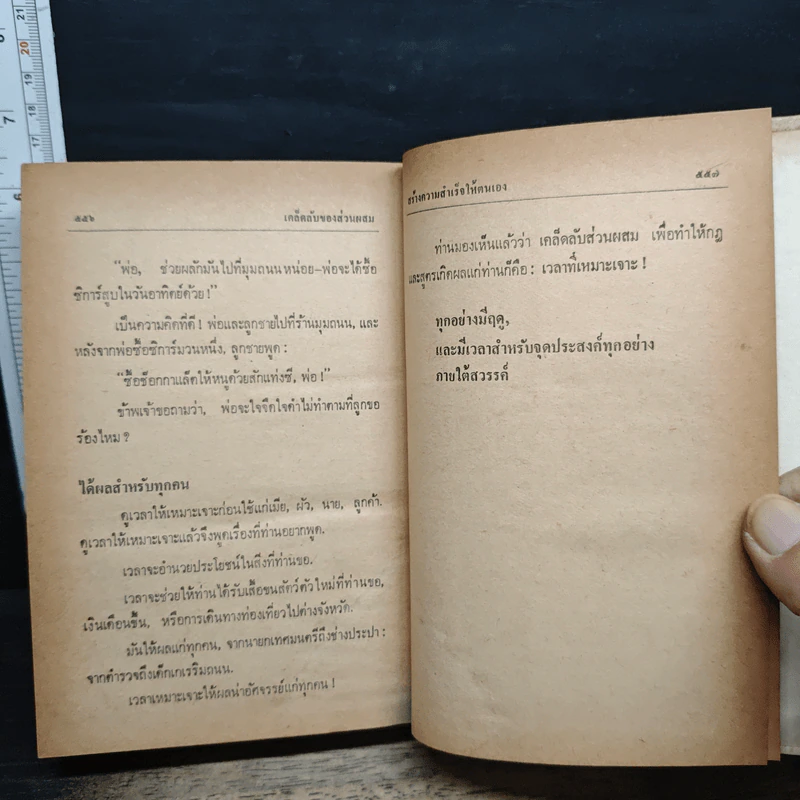 ๕๕๖ เคล็ดลับของส่วนผสม
“พ่อ, ช่วยผลักมันไปที่มุมถนนหน่อย–พ่อจะได้ซื้อ
ซิการ์สูบในวันอาทิตย์ด้วย!”
เป็นความคิดที่ดี! พ่อและลูกชายไปที่ร้านมุมถนน, และ
หลังจากพ่อซื้อซิการ์มวนหนึ่ง, ลูกชายพูด:
“ซื้อช็อกกาแล็ตให้หนูด้วยสักแท่งซี, พ่อ!”
ข้าพเจ้าขอถามว่า, พ่อจะใจจืดใจดำไม่ทำตามที่ลูกขอ
ร้องไหม?
ได้ผลสำหรับทุกคน
ดูเวลาให้เหมาะเจาะก่อนใช้แก่เมีย, ผัว, นาย, ลูกค้า.
ดูเวลาให้เหมาะเจาะแล้วจึงพูดเรื่องที่ท่านอยากพูด.
เวลาจะอำนวยประโยชน์ในสิ่งที่ท่านขอ.
เวลาจะช่วยให้ท่านได้รับเสื้อขนสัตว์ตัวใหม่ที่ท่านขอ,
เงินเดือนขึ้น, หรือการเดินทางท่องเที่ยวไปต่างจังหวัด.
มันให้ผลแก่ทุกคน, จากนายกเทศมนตรีถึงช่างประปา:
จากตำรวจถึงเด็กเกเรริมถนน.
เวลาเหมาะเจาะให้ผลน่าอัศจรรย์แก่ทุกคน!
สร้างความสำเร็จให้ตนเอง ๕๕๗
ท่านมองเห็นแล้วว่า เคล็ดลับส่วนผสม เพื่อทำให้กฎ
และสูตรเกิดผลแก่ท่านก็คือ: เวลาที่เหมาะเจาะ!
ทุกอย่างมีฤดู,
และมีเวลาสำหรับจุดประสงค์ทุกอย่าง
ภายใต้สวรรค์
21
20
19
18
17
7
6